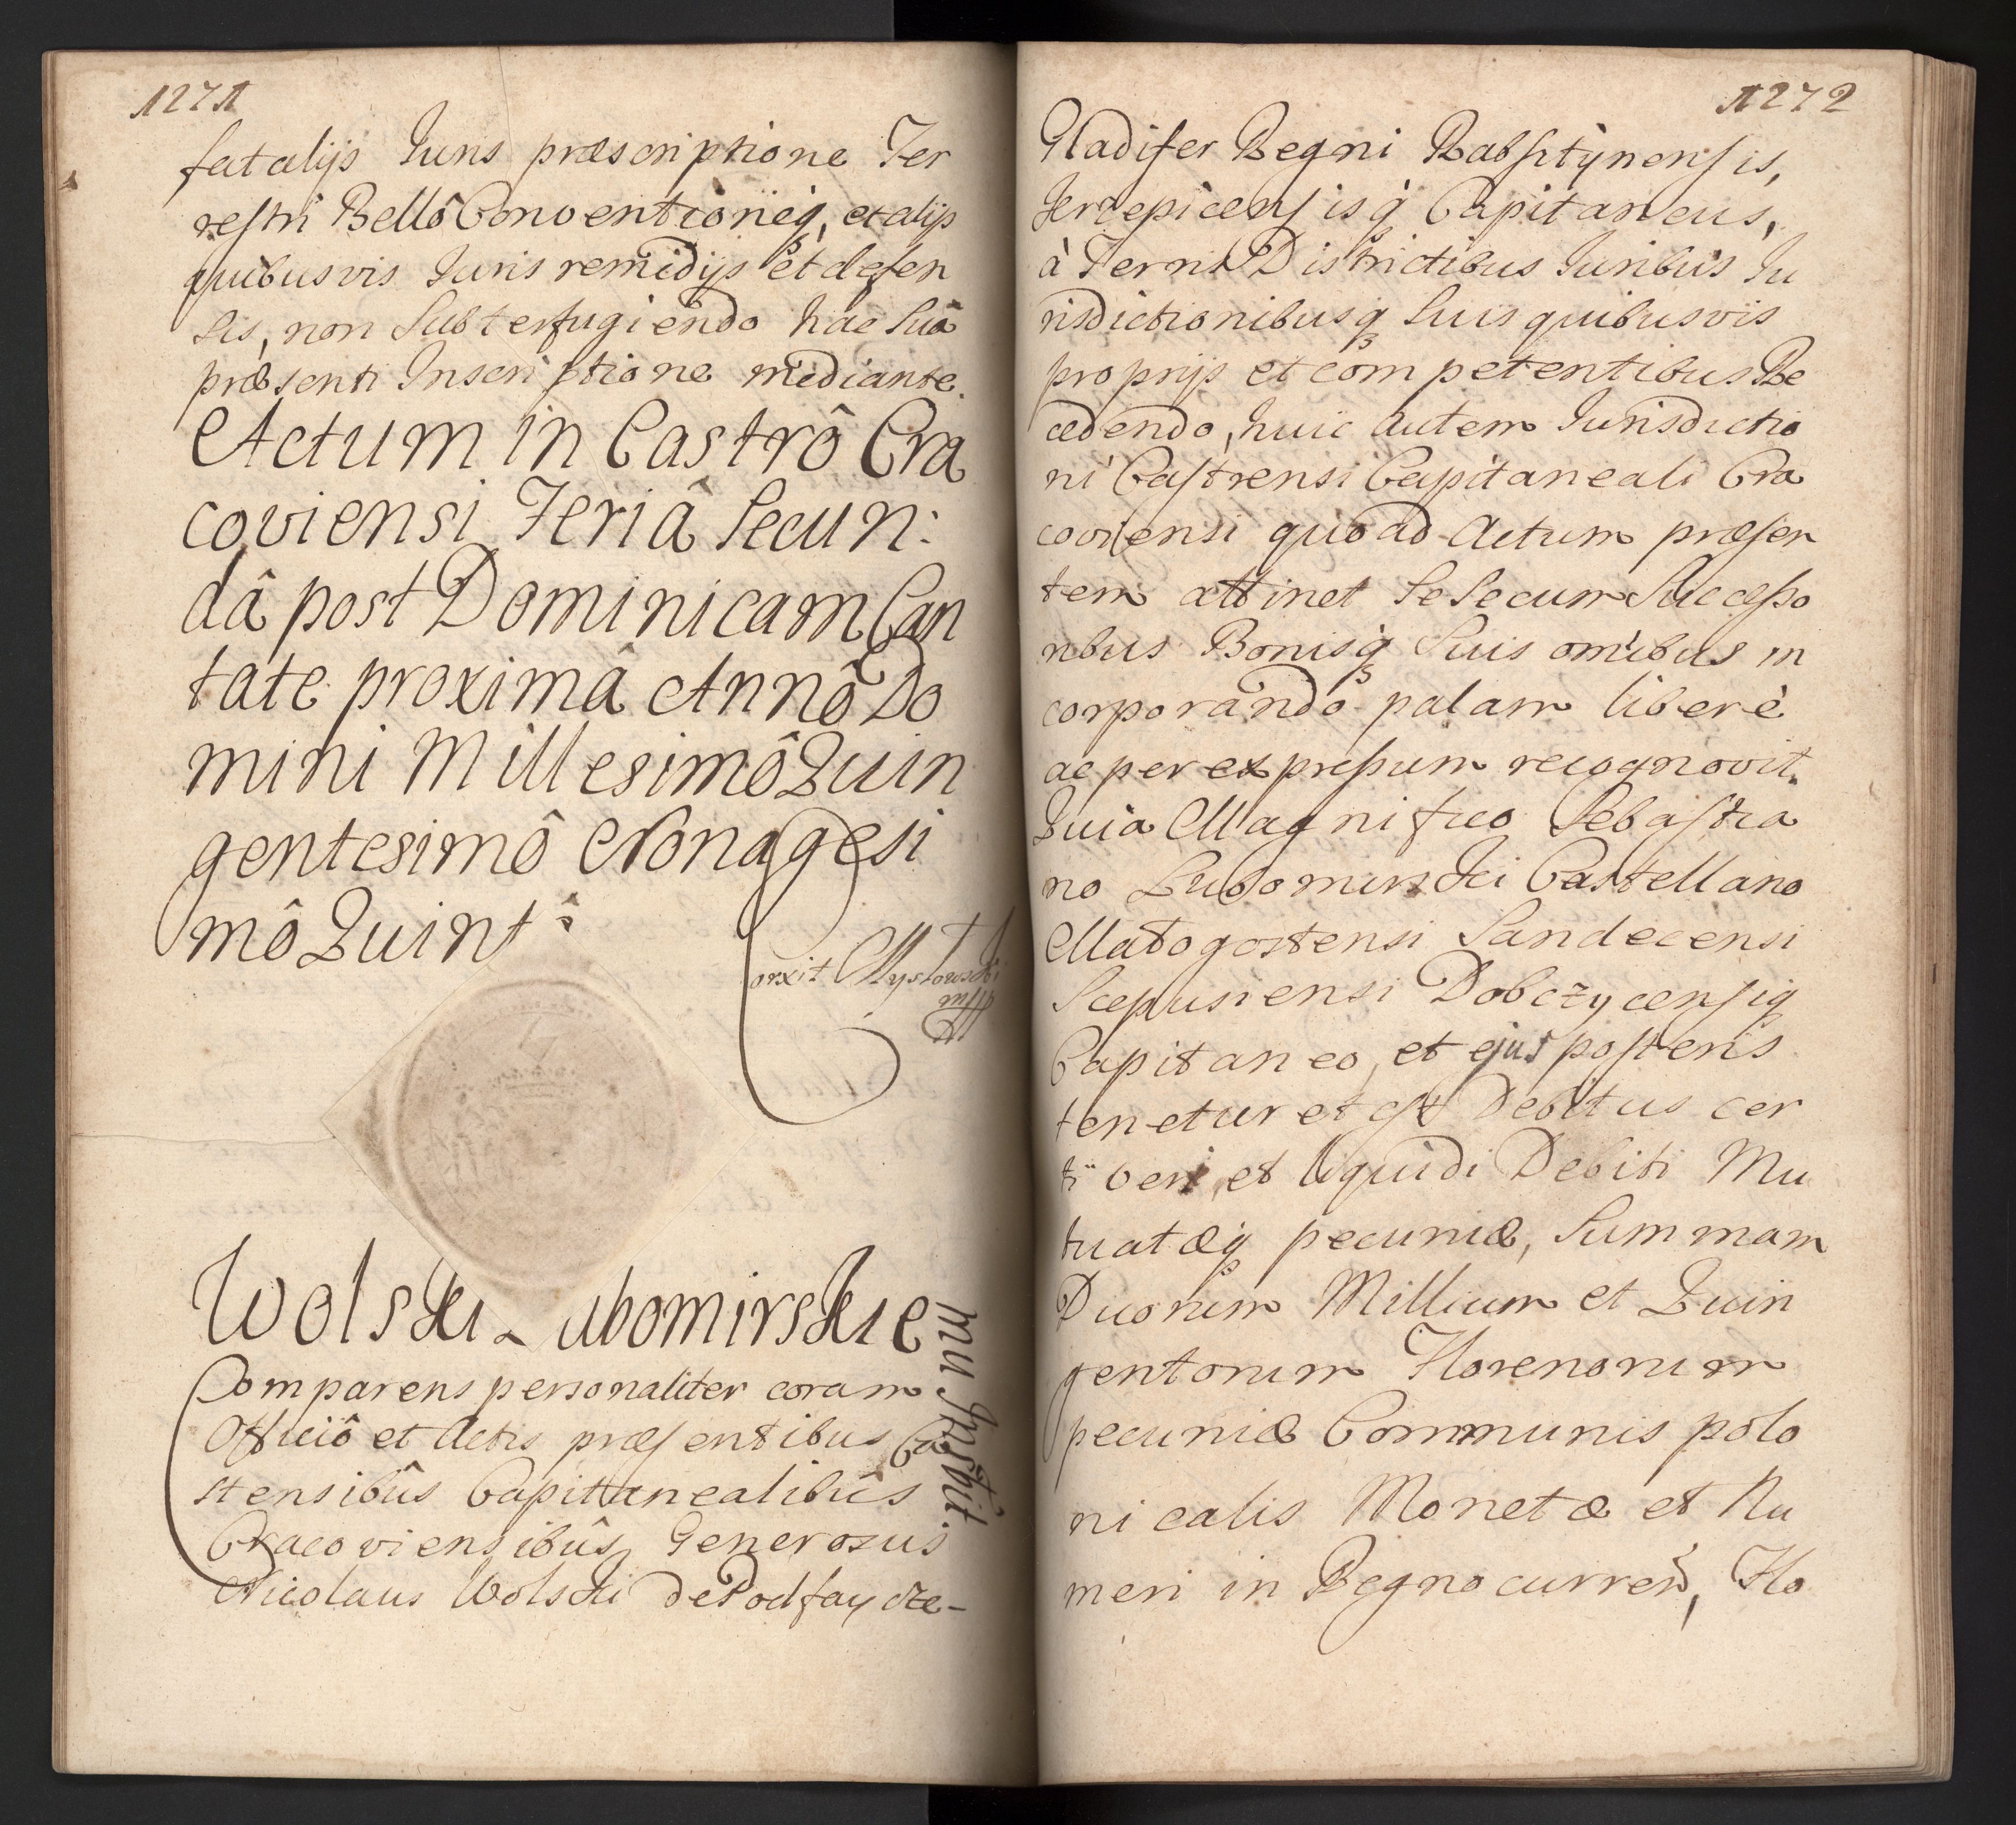 1271
fatalijs Juris præscriptione Ter
restri Bellô Conventioneq, et alijs
quibusvis Juris remedijs et defen
sis, non Subterfugiendo hac Suâ
præsenti Inscriptione mediante.
Actum in Castrô Cra
coviensi Feriâ Secun:
dâ post Dominicam Can
tate proximâ Annô Do
mini Millesimô Quin
gentesimô Nonagesi
mô Quintô
Wolski Lubomirskie
mu
Comparens personaliter coram
Officiô et Actis præsentibus Ca
strensibûs Capitanealibûs
Cracoviensibûs Generosus
Nicolaus Wolski de Podhaycze-
1272
Gladifer Regni Rabsztÿnensis,
Krzepicensisq Capitaneus,
à Terris Districtibus Juribûs Ju
risdictionibusq Suis quibusvis
proprijs et competentibus Re
cedendo, huic autem Jurisdictio
ni Castrensi Capitaneali Cra
coviensi quo ad Actum præsen
tem attinet Se Secum Successo
ribus Bonisq Suis omibus in
corporando palam liberè
ac per expressum recognovit.
Quia Magnifico Sebastia
no Lubomirski Castellano
Małogostensi Sandecensi
Scepusiensi Dobczycensiq
Capitaneo, et ejus posteris
tenetur et est Debitus cer
ti veri, et liquidi Debiti Mu
tuatæq pecuniæ, Summam
Duorum Millium et Quin
gentorum Florenorum
pecuniæ Communis polo
nicalis Monetæ et Nu
meri in Regno curren, Flo